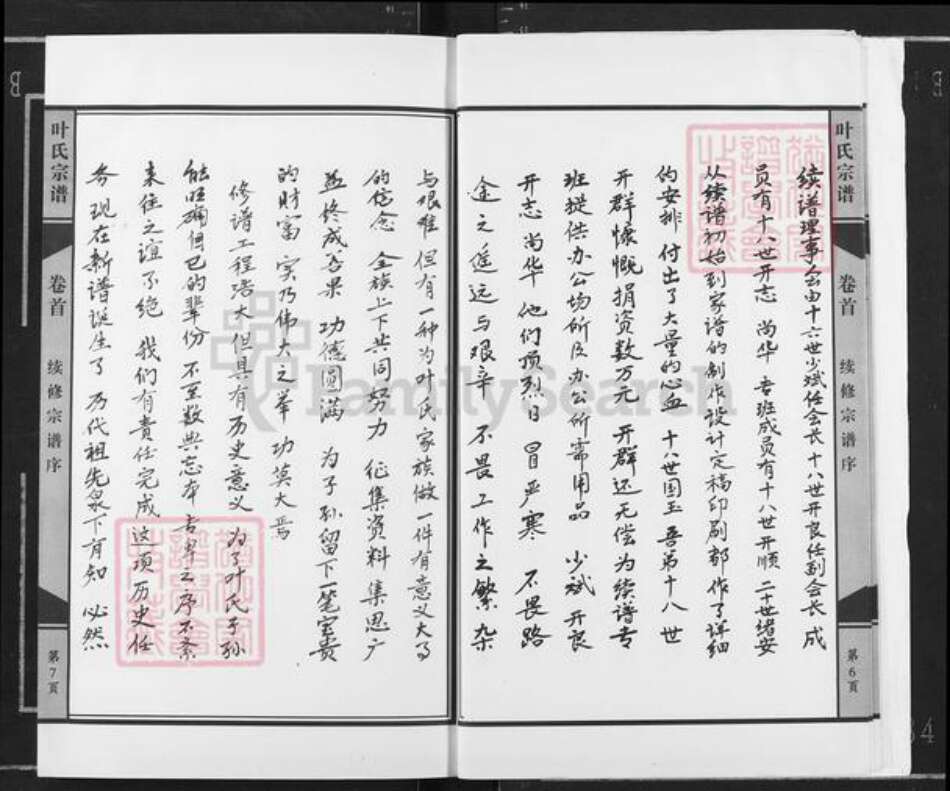 叶氏宗谱
卷首
续修宗谱序
第6页
续谱理事会由十六世少斌任会长 十八世开良任副会长 成
员有十八世开志 尚华 专班成员有十八世开顺 二十世绪安
从续谱初始到家谱的制作设计定稿印刷都作了详细
的安排 付出了大量的心血 十八世国玉 吾弟十八世
开群慷慨捐资数万元 开群还无偿为续谱专
班提供办公场所及办公所需用品 少斌 开良
开志 尚华 他们顶烈日 冒严寒 不畏路
途之遥远与艰辛 不畏工作之繁杂
与艰难 但有一种为叶氏家族做一件有意义大事
的信念 全族上下共同努力 征集资料 集思广
益 终成吾果 功德圆满 为子孙留下一笔宝贵
的财富 实乃伟大之举 功莫大焉
修谱工程浩大但具有历史意义 为了叶氏子孙
能明确自己的辈份 不至数典忘本 长幼之序不紊
来往之谊不绝 我们有责任完成这项历史任
务 现在新谱诞生了 历代祖先泉下有知 必然
叶氏宗谱
卷首
续修宗谱序
第7页
FamilySearch
B
B
34